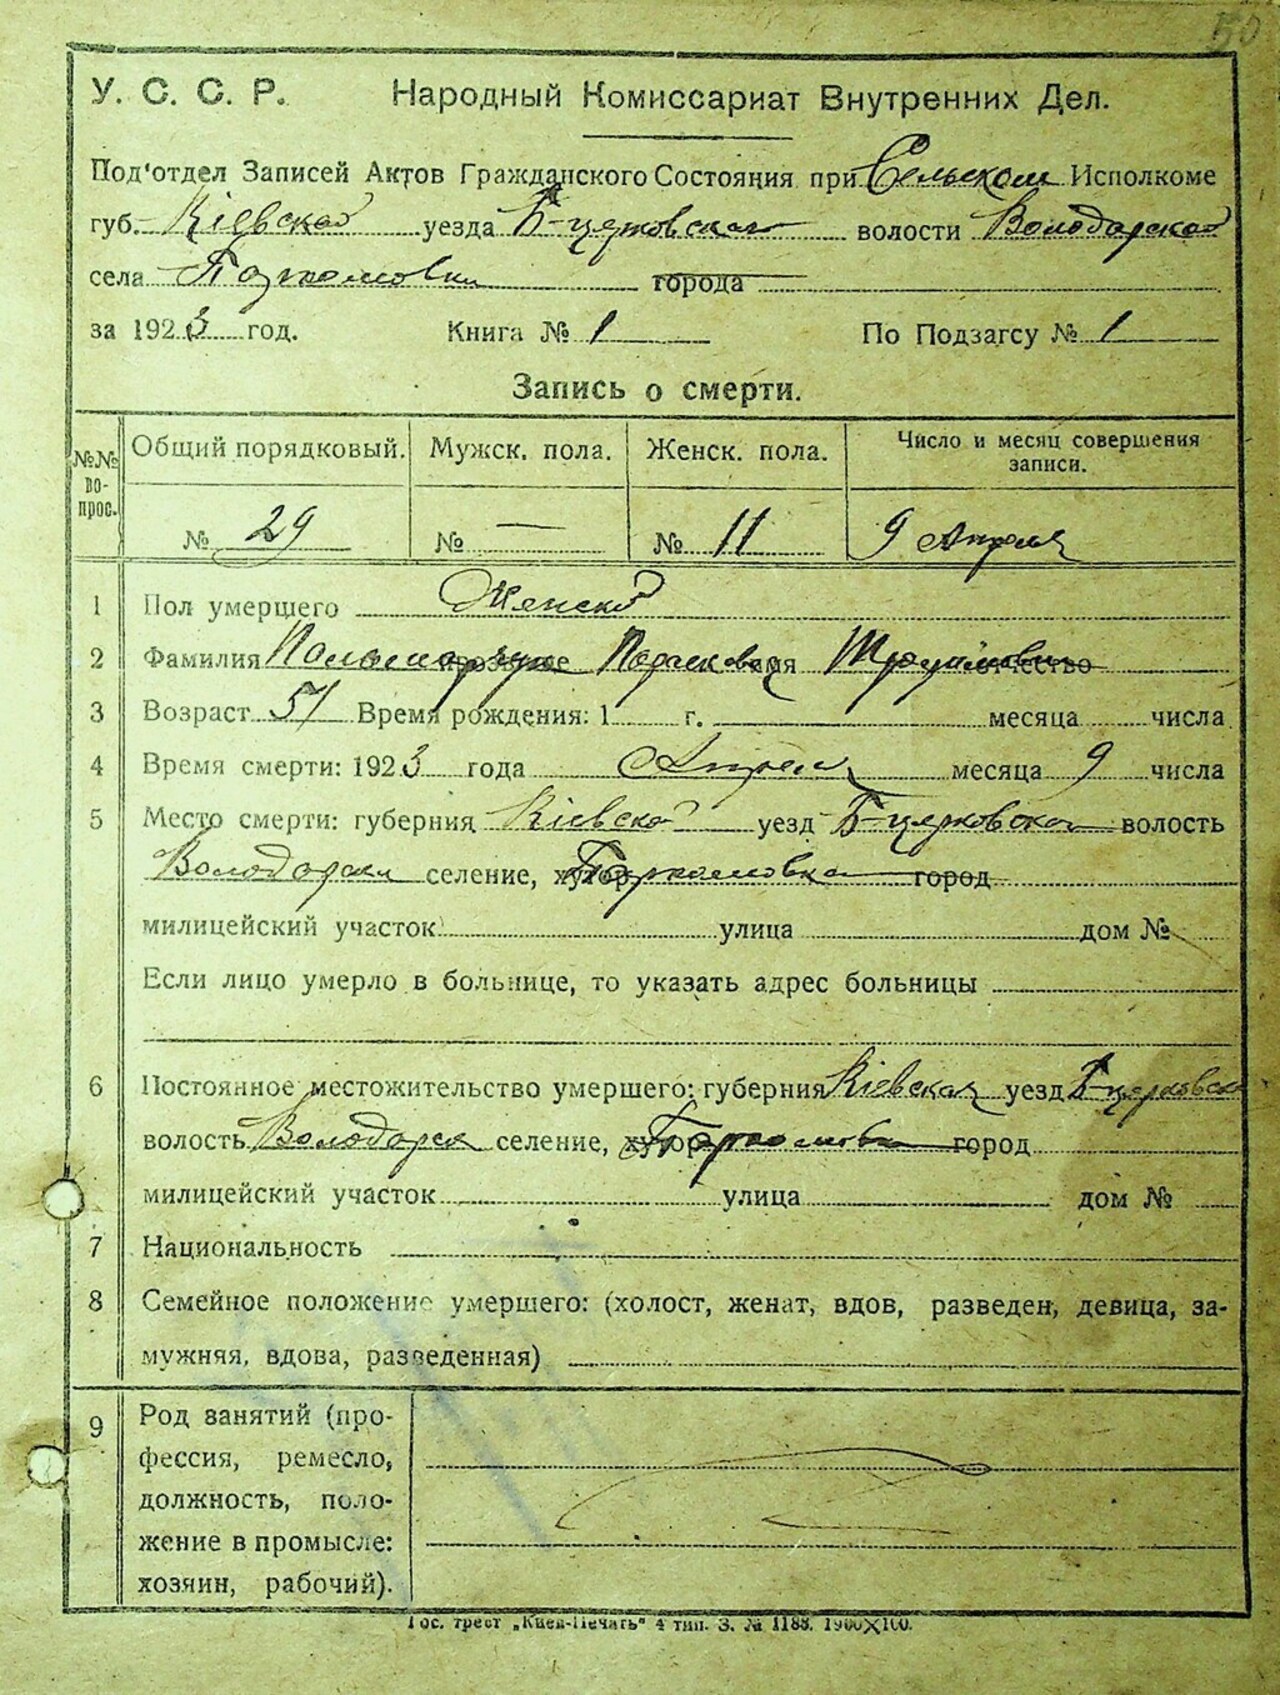 50
У. С. С. Р. Народный Комиссариат Внутренних Дел.
Под'отдел Записей Актов Гражданского Состояния при Сельском Исполкоме
губ. Кіевской уезда Б-церковская волости Володарской
села Пархомовки города
за 1923 год. Книга № 1 По Подзагсу № 1
Запись о смерти.
№№ вопрос. Общий порядковый. Мужск. пола. Женск. пола. Число и месяц совершения записи.
№ 29 № — № 11 9 Апреля
1 Пол умершего Женской
2 Фамилия прозвище имя отчество
3 Возраст 51 Время рождения: 1 г. месяца числа
4 Время смерти: 1923 года Апреля месяца 9 числа
5 Место смерти: губерния Кіевской уезд Б-церковской волость
Володарск селение, хутор Пархомовка город
милицейский участок улица дом №
Если лицо умерло в больнице, то указать адрес больницы
6 Постоянное местожительство умершего: губерния Кіевская уезд Б-церковск
волость Володарск селение, хутор Пархомовка город
милицейский участок улица дом №
7 Национальность
8 Семейное положение умершего: (холост, женат, вдов, разведен, девица, за-
мужняя, вдова, разведенная)
9 Род занятий (про-
фессия, ремесло,
должность, поло-
жение в промысле:
хозяин, рабочий).
Гос. трест „Киев-Печать" 4 тип. З. № 1188. 1900X100.